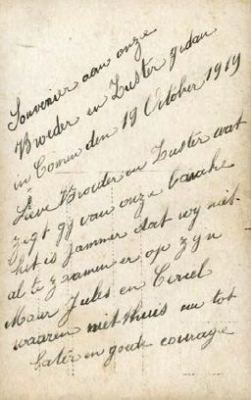 Souvenier aan onze
Broeder en Zuster gedan
in Comen den 19 October 1919
Lieve Broeder en Zuster wat
zegt gy van onze barake
het is jammer dat wy niet
al te zaamen er op zyn
Maur Jules en Ciriel
waaren niet thuis nu tot
later en goede courage